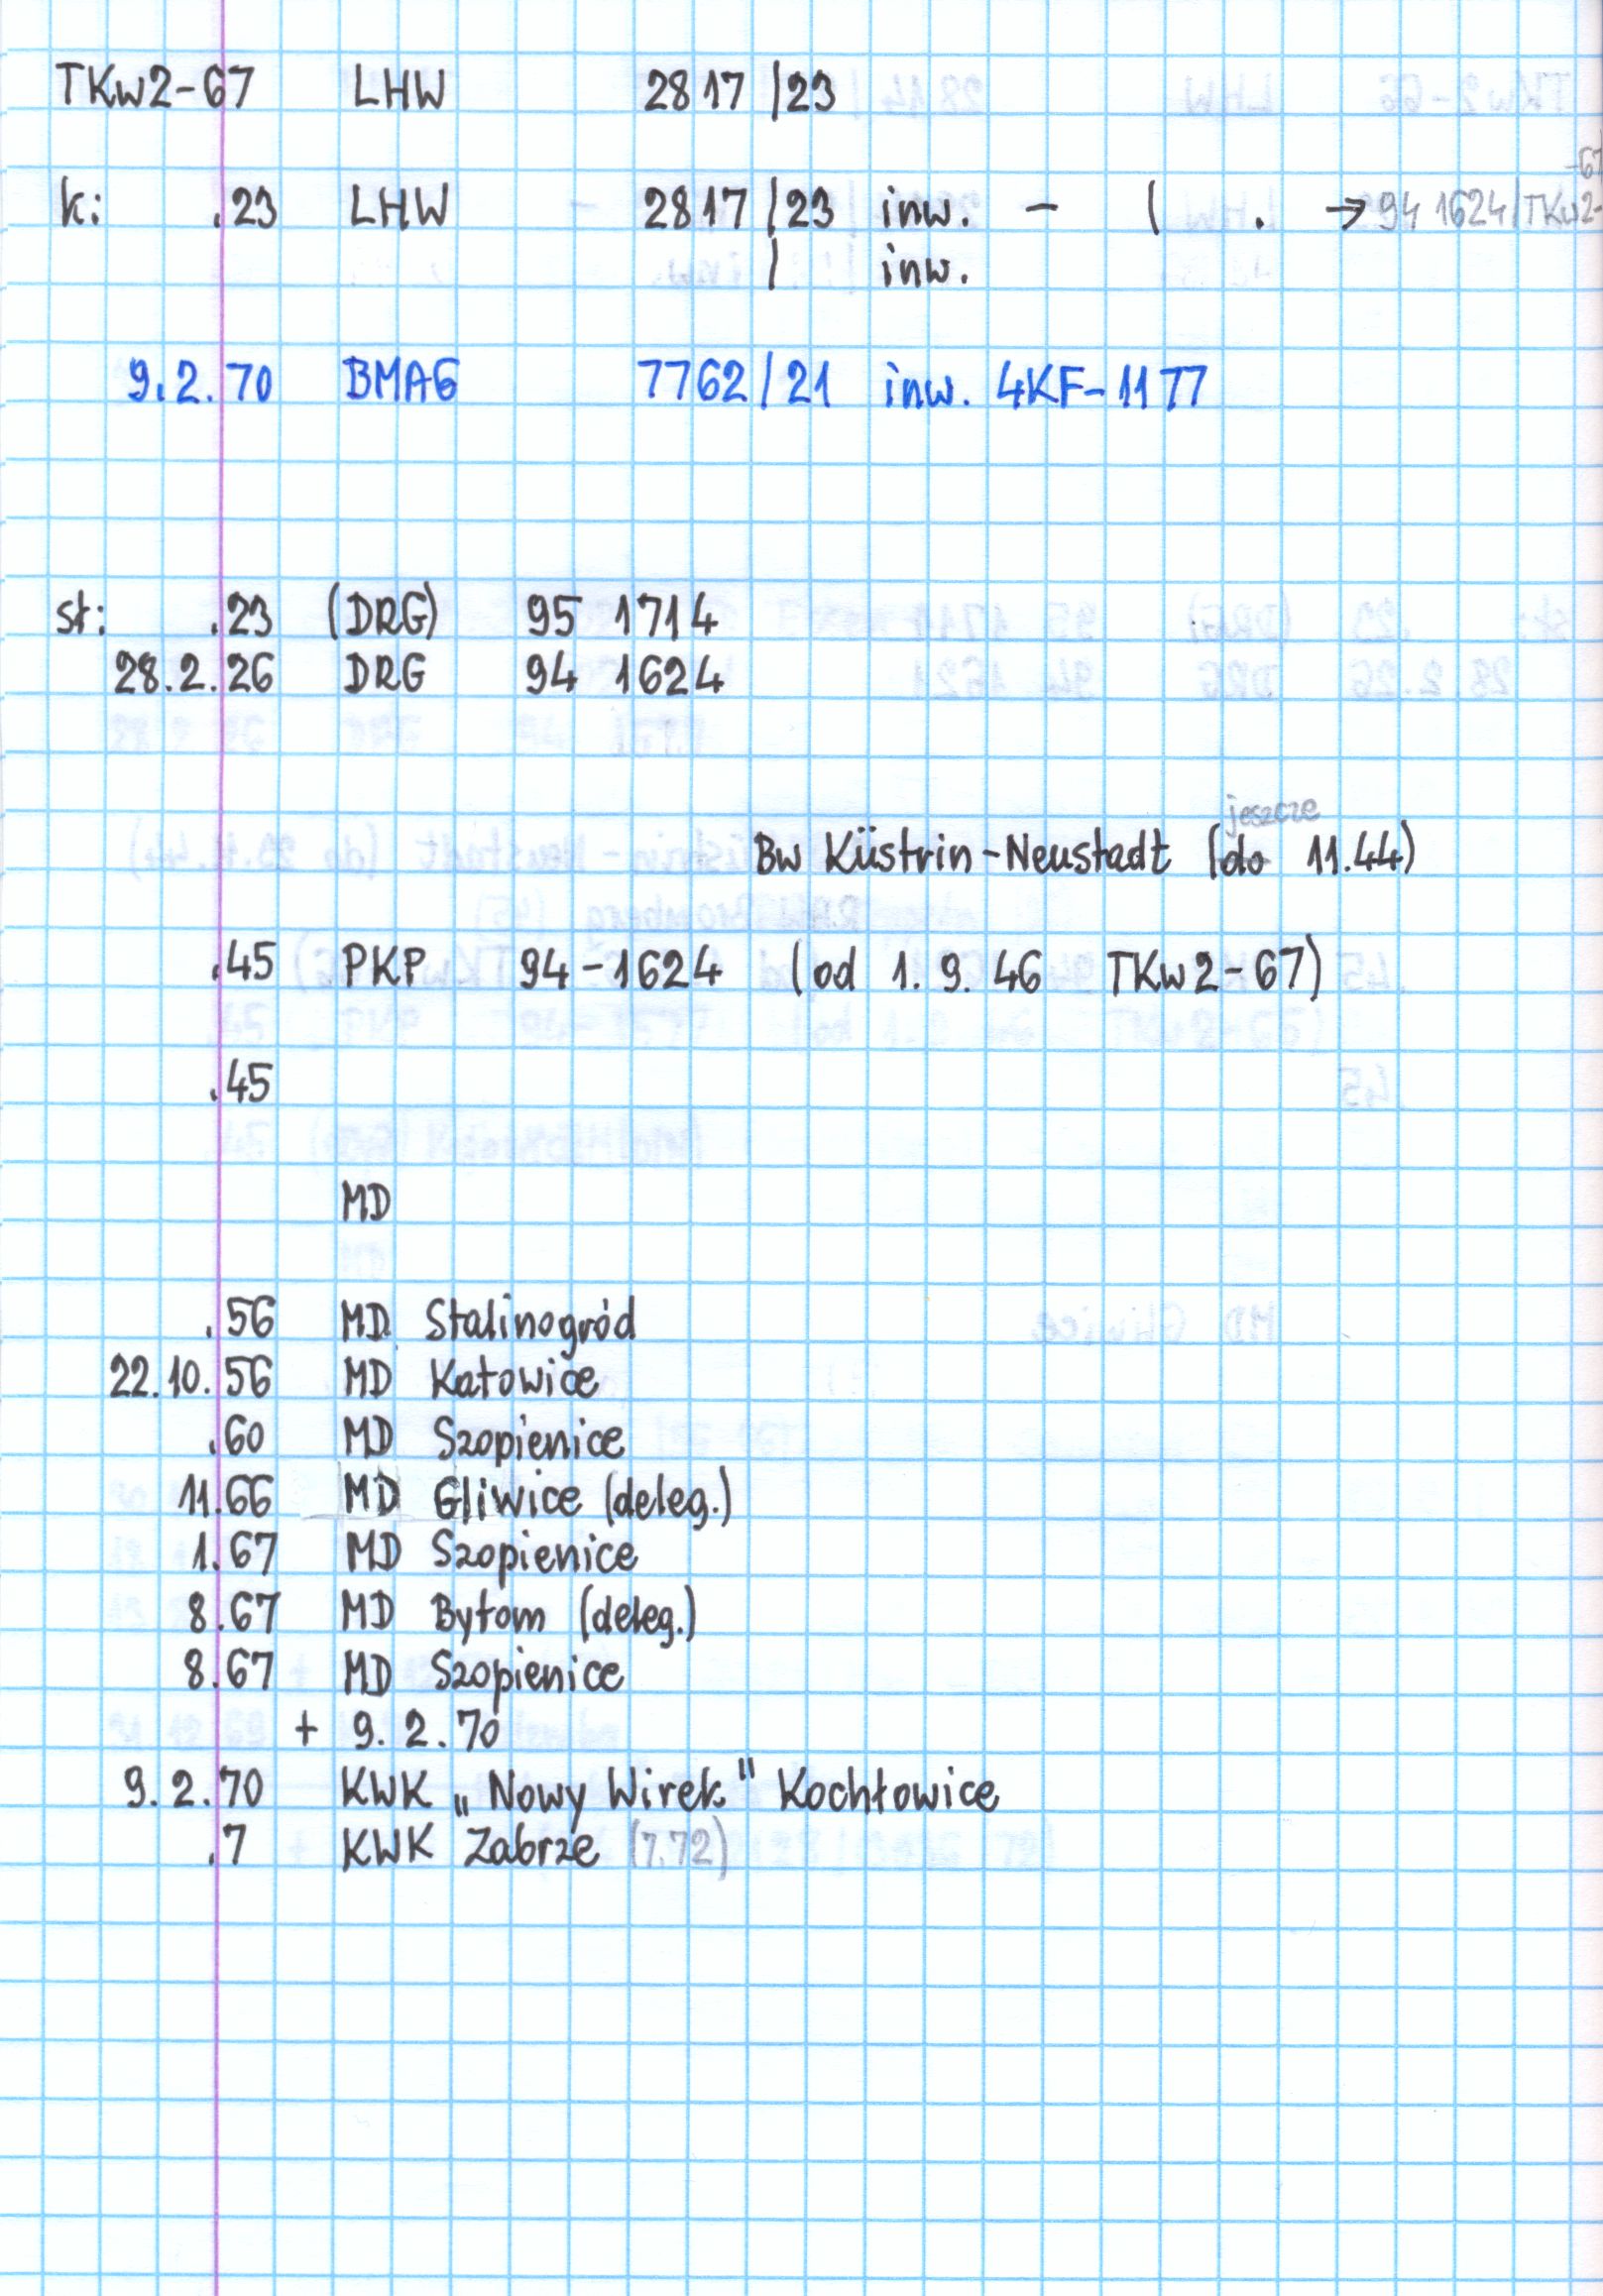 TKw2-67 LHW 2817/23
-67
k: .23 LHW 2817/23 inw. - ( . → 94 1624/TKw2-
/ inw.
9.2.70 BMAG 7762/21 inw. 4KF-1177
st: .23 (DRG) 95 1714
28.2.26 DRG 94 1624
jeszcze
Bw Küstrin-Neustadt (do 11.44)
.45 PKP 94-1624 (od 1.9.46 TKw2-67)
.45
MD
.56 MD Stalinogród
22.10.56 MD Katowice
.60 MD Szopienice
11.66 MD Gliwice (deleg.)
1.67 MD Szopienice
8.67 MD Bytom (deleg.)
8.67 MD Szopienice
+ 9.2.70
9.2.70 KWK „Nowy Wirek" Kochłowice
.7 KWK Zabrze (7.72)